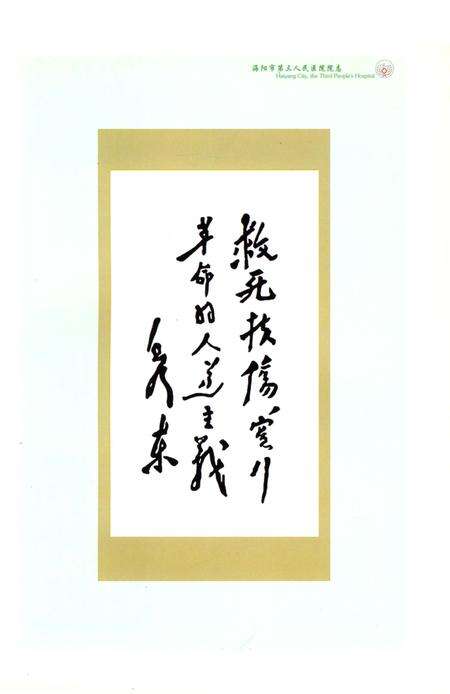 海阳市第三人民医院院志
Haiyang City, the Third People's Hospital
救死扶傷寔行
革命的人道主義
毛澤東